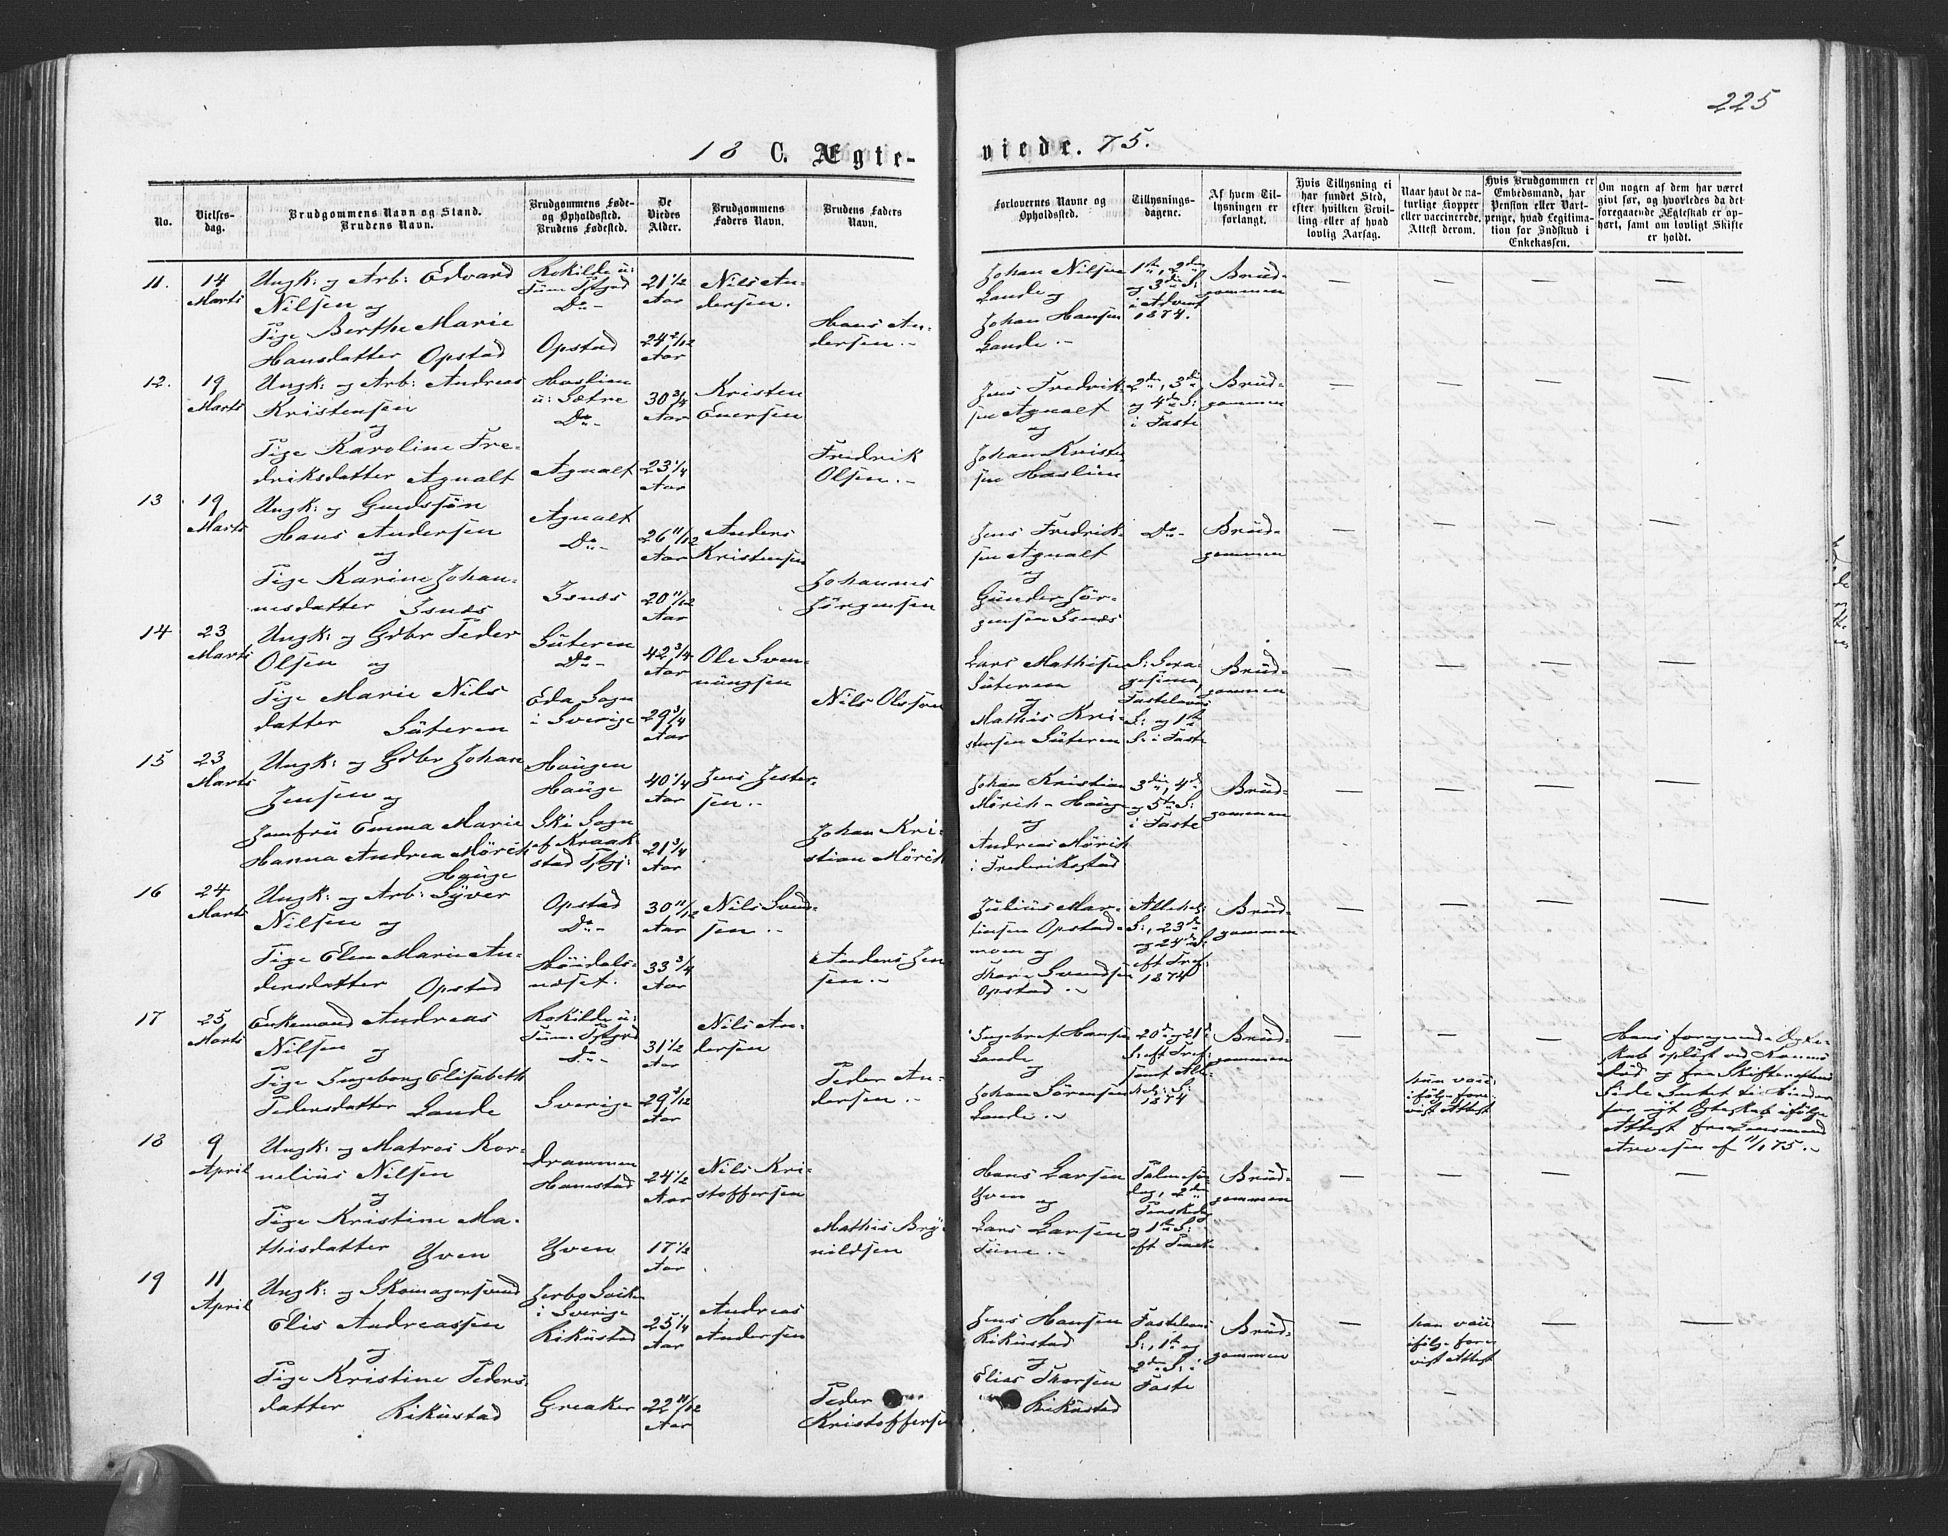 225
18 C. Ægte-
viede. 75.
No.
Vielses-
dag.
Brudgommens Navn og Stand.
Brudens Navn.
Brudgommens Føde-
og Opholdssted.
Brudens Fødested.
De
Viedes
Alder.
Brudgommens
Faders Navn.
Brudens Faders
Navn.
Forlovernes Navne og
Opholdssted.
Tillysnings-
dagene.
Af hvem Til-
lysningen er
forlangt.
Hvis Tillysning ei
har fundet Sted,
efter hvilken Bevil-
ling eller af hvad
lovlig Aarsag.
Naar havt de na-
turlige Kopper
eller vaccinerede.
Attest derom.
Hvis Brudgommen er
Embedsmand, har
Pension eller Vart-
penge, hvad Legitima-
tion for Indskud i
Enkekassen.
Om nogen af dem har været
givt før, og hvorledes da det
foregaaende Ægteskab er op-
hørt, samt om lovligt Skifte
er holdt.
11.
14
Marts
Ungk: og Arb: Edvard
Nilsen og
Pige Berthe Marie
Hansdatter Opstad
Rokilde u:
Tune Pstgrd
Do-
Opstad
21 1/2
Aar
24 2/12
Aar
Nils An-
dersen.
Hans An-
dersen.-
Johan Nilsen
Lande og
Johan Hansen
Lande.-
1ste, 2den
og 3die S:
i Advent
1874.
Brud-
gommen
12.
19
Marts
Ungk: og Arb: Andreas
Kristensen
og
Pige Karoline Fre-
driksdatter Agnalt
Haslien
u: Sætre
Do-
Agnalt
30 3/4
Aar
23 1/4
Aar
Kristen
Eversen
Fredrik
Olsen.-
Jens Fredrik-
sen Agnalt
og
Johan Kriste
sen Haslien
2den, 3die
og 4de S:
i Faste
Brud-
gommen
13
19
Marts
Ungk: og Gaardssøn
Hans Andersen
og
Pige Karine Johan-
nesdatter Isnæs
Agnalt
Do-
Isnæs
26 11/12
Aar
20 11/12
Aar
Anders
Kristensen
Johannes
Jørgensen
Jens Fredrik-
sen Agnalt
og
Gunder Jør-
gensen Isnæs
Do-
Brud-
gommen
14
23
Marts
Ungk: og Gdbr Peder
Olsen og
Pige Marie Nils
datter Suteren
Suteren
Do-
Eda Sogn
i Sverige
42 3/4
Aar
29 3/4
Aar
Ole Sven-
nungsen
Nils Olsson
Lars Mathisen
Suteren
og
Mathis Kri-
stensen Suteren
S: Sexa-
gesima,
Fastelavns
S: og 1ste
S: i Faste
Brud-
gommen
15
23
Marts
Ungk: og Gdbr Johan
Jensen og
Jomfru Emma Marie
Hanna Andrea Mørich
Hauge
Haugen
Hauge
Ski Sogn
af Kraak-
stad Pstgj:
40 1/4
Aar
21 3/4
Aar
Jens Jesper-
sen.-
Johan Kri-
stian Mørich
Johan Kristian
Mørich - Hauge
og
Andreas Mørich
i Frederikstad
3die, 4de
og 5te S:
i Faste
Brud-
gommen
16
24
Marts
Ungk: og Arb: Syver
Nilsen og
Pige Elen Marie An-
dersdatter Opstad
Opstad
Do-
Høidals-
næset.
30 11/12
Aar
33 3/4
Aar
Nils Svend-
sen.-
Anders Jen
sen.-
Julius Mar-
tinsen Opstad-
moen og
Thore Svendsen
Opstad.-
Allehel:
S:, 23de
og 24de S:
eft Tref:
1874
Brud-
gommen
17
25
Marts
Enkemand Andreas
Nilsen
og
Pige Ingeborg Elisabeth
Pedersdatter Lande
Rokilde u:
Tune Pstgrd
Do-
Sverige
31 1/2
Aar
29 2/12
Aar
Nils An-
dersen
Peder An-
dersen.-
Ingebret Hansen
Lande
og
Johan Sørensen
Lande.-
20de og 21de
S: eft Tref:
samt Alle-
hel: S:
1874
Brud-
gommen
hun vacc:
ifølge fore-
vist Attest
Hans foregaaende Ægte-
skab opløst ved Konens
Død og fra Skifterettens
Side Intet til Hinder
for nyt Ægteskab ifølge
Attest fra Lensmand
Arvesen af 11/1 75.-
18
9
April
Ungk: og Matros Kor-
nelius Nilsen
og
Pige Kristine Ma-
thisdatter Yven
Drammen
Hannestad
Yven
24 1/2
Aar
17 1/2
Aar
Nils Kri-
stoffersen
Mathis Bryn-
nildsen
Hans Larsen
Yven
og
Lars Larsen
Tune.-
Palmesøn
dag, 2den
Paaskedg
og 1ste S:
eft Paaske
Brud-
gommen
19
11
April
Ungk: og Skomagersvend
Elis Andreassen
og
Pige Kristine Peders-
datter Rikustad
i Sverige
Rikustad
Greaker
25 1/4
Aar
22 11/12
Aar
Andreas
Andersen
Peder
Kristoffersen
Jens Hansen
Rikustad
og
Elias Thorsen
Rikustad
Fastelavns
S:, 1ste og
2den S: i
Faste
Brud-
gommen
han vacc:
ifølge fore-
vist Attest